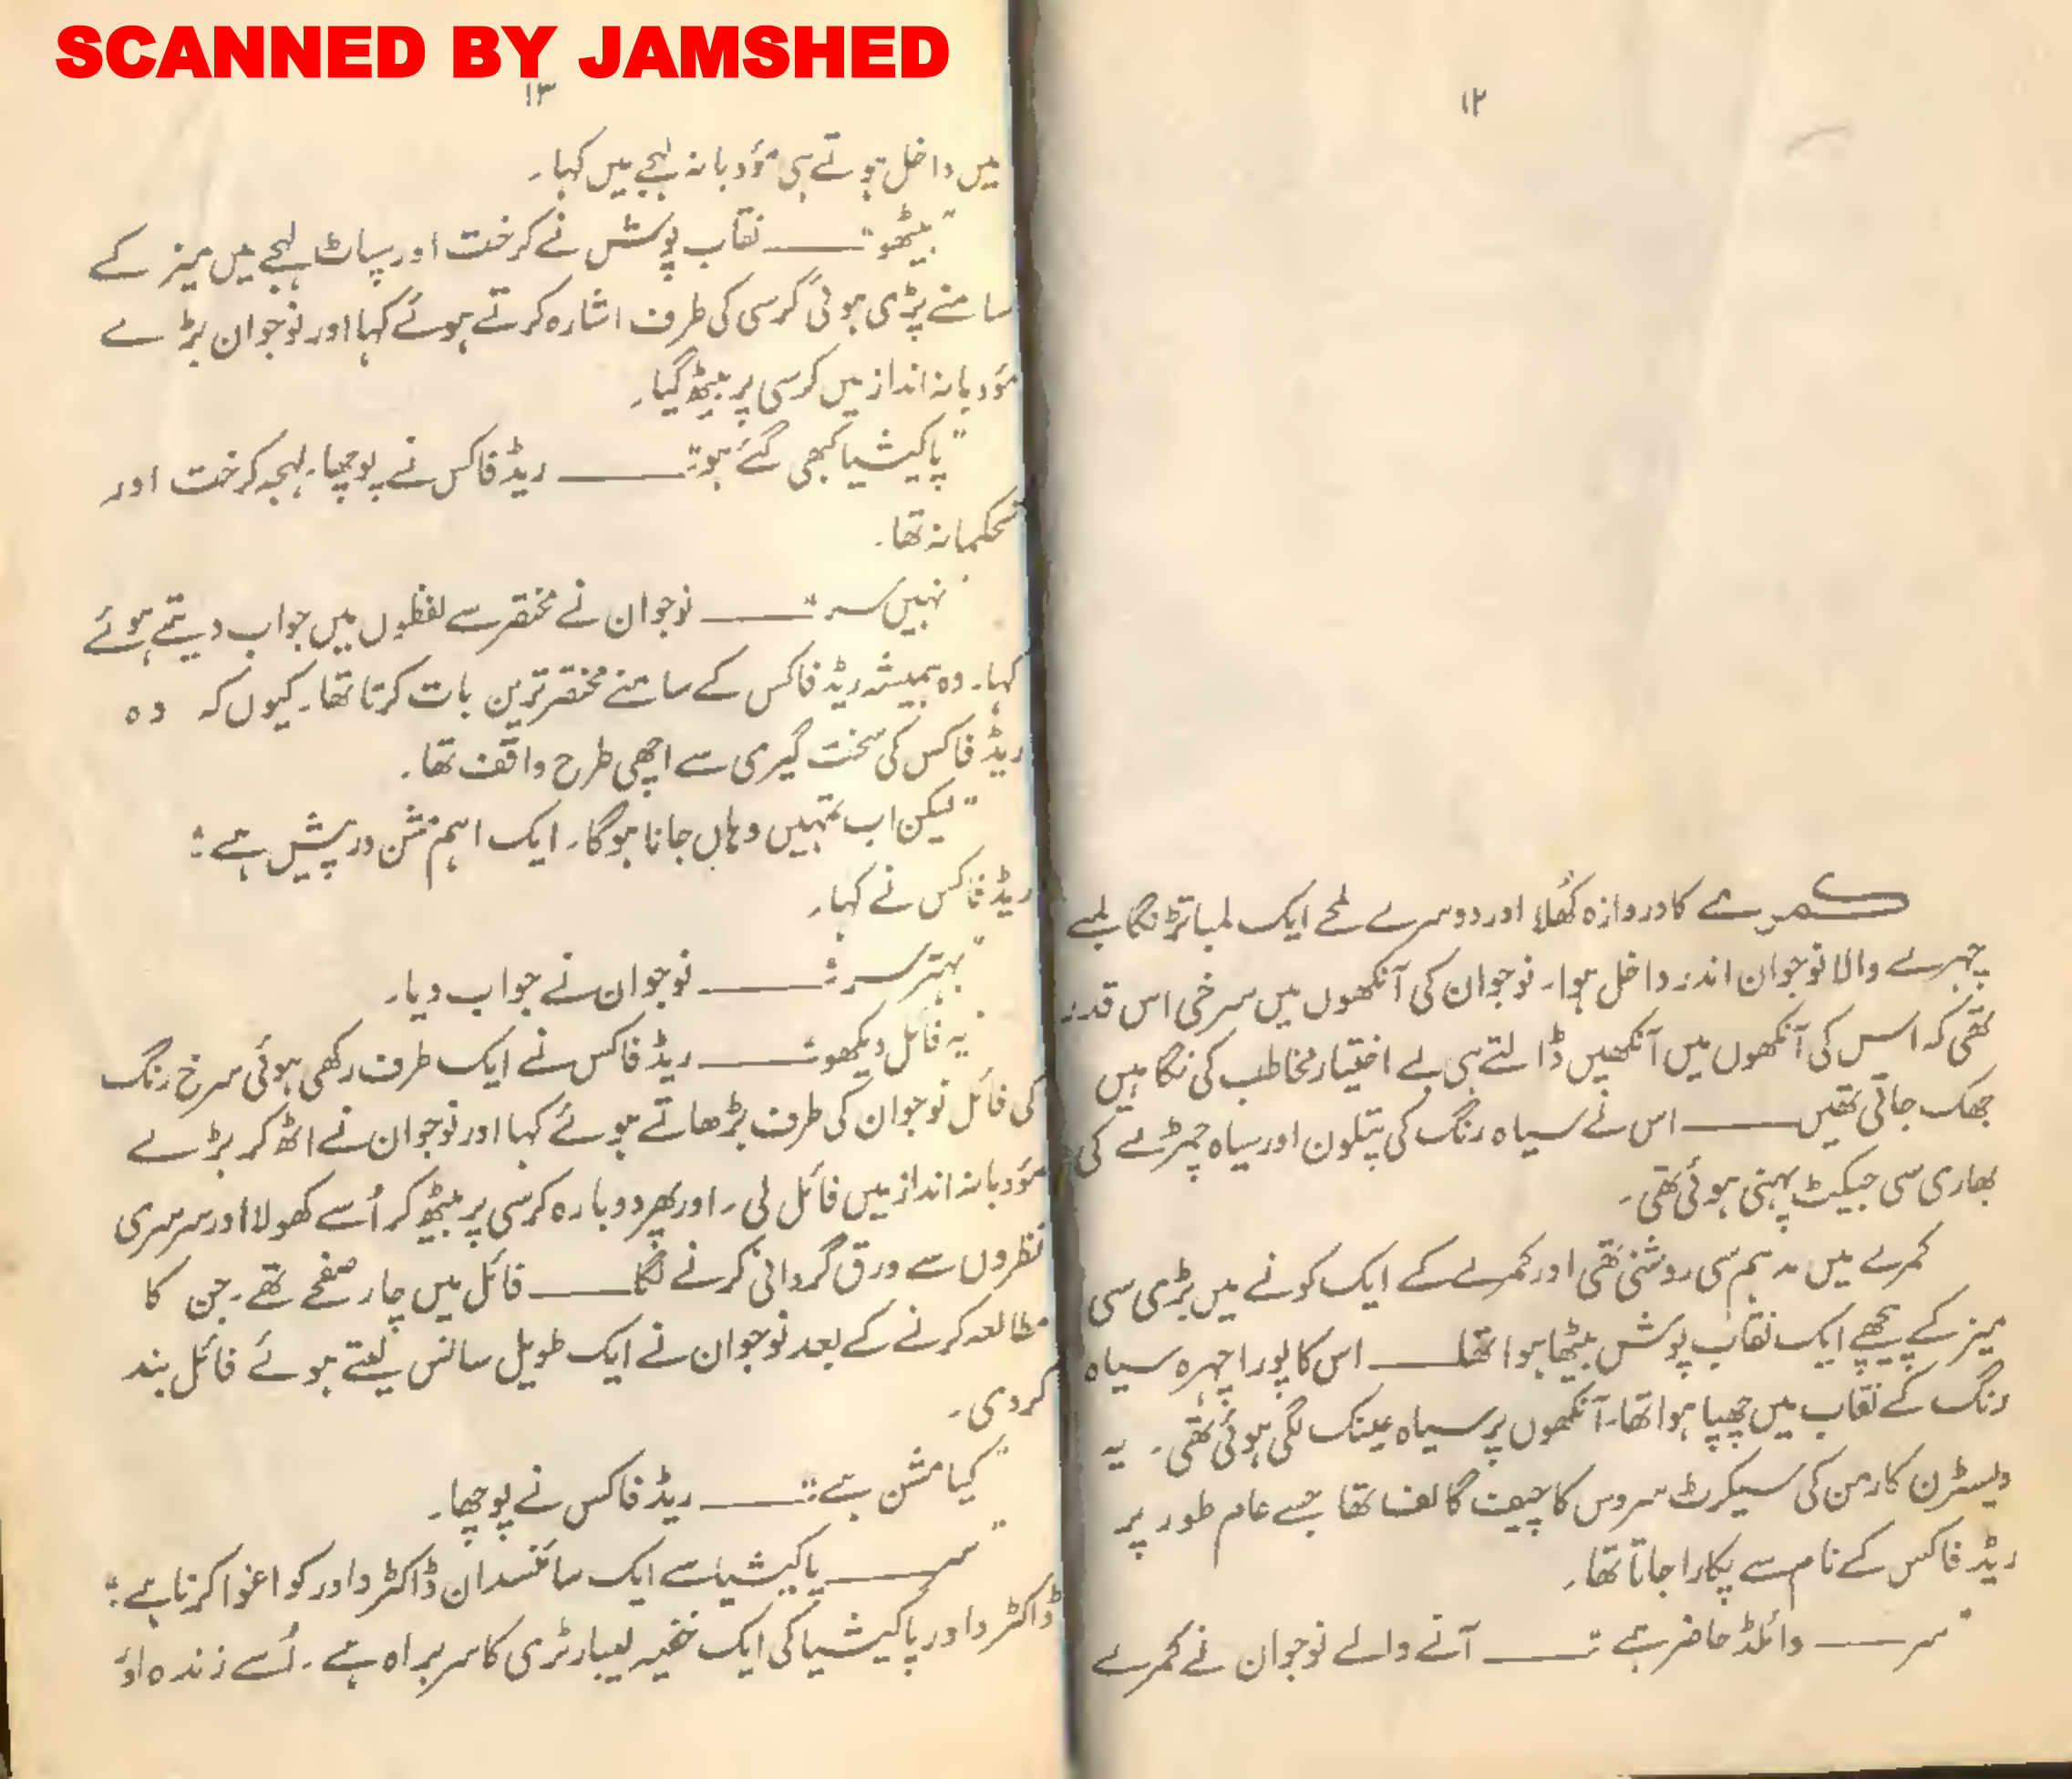 SCANNED BY JAMSHED
۱۲
کمرے کا دروازہ کھُلا اور دوسرے لمحے ایک لمبا تڑنگا لمبے
چہرے والا نوجوان اندر داخل ہوا۔ نوجوان کی آنکھوں میں سرخی اس قدر
تھی کہ اس کی آنکھوں میں آنکھیں ڈالتے ہی بے اختیار مخاطب کی نگاہیں
جھک جاتی تھیں ——— اس نے سیاہ رنگ کی پتلون اور سیاہ چمڑے کی
بھاری سی جیکٹ پہنی ہوئی تھی۔
کمرے میں مدہم سی روشنی تھی اور کمرے کے ایک کونے میں بڑی سی
میز کے پیچھے ایک نقاب پوش بیٹھا ہوا تھا ——— اس کا پورا چہرہ سیاہ
رنگ کے نقاب میں چھپا ہوا تھا۔ آنکھوں پر سیاہ عینک لگی ہوئی تھی۔ یہ
ویسٹرن کارمن کی سیکرٹ سروس کا چیف گالف تھا جسے عام طور پر
ریڈ فاکس کے نام سے پکارا جاتا تھا۔
"سر ——— وائلڈ حاضر ہے" ——— آنے والے نوجوان نے کمرے
۱۳
میں داخل ہوتے ہی مؤدبانہ لہجے میں کہا۔
"بیٹھو" ——— نقاب پوش نے کرخت اور سپاٹ لہجے میں میز کے
سامنے پڑی ہوئی کرسی کی طرف اشارہ کرتے ہوئے کہا اور نوجوان بڑے
مؤدبانہ انداز میں کرسی پر بیٹھ گیا۔
"پاکیشیا کبھی گئے ہو" ——— ریڈ فاکس نے پوچھا۔ لہجہ کرخت اور
تحکمانہ تھا۔
"نہیں سر" ——— نوجوان نے مختصر سے لفظوں میں جواب دیتے ہوئے
کہا۔ وہ ہمیشہ ریڈ فاکس کے سامنے مختصر ترین بات کرتا تھا۔ کیوں کہ وہ
ریڈ فاکس کی سخت گیری سے اچھی طرح واقف تھا۔
"لیکن اب تمہیں وہاں جانا ہوگا۔ ایک اہم مشن درپیش ہے"
ریڈ فاکس نے کہا۔
"بہتر سر" ——— نوجوان نے جواب دیا۔
"یہ فائل دیکھو" ——— ریڈ فاکس نے ایک طرف رکھی ہوئی سرخ رنگ
کی فائل نوجوان کی طرف بڑھاتے ہوئے کہا اور نوجوان نے اٹھ کر بڑے
مؤدبانہ انداز میں فائل لی۔ اور پھر دوبارہ کرسی پر بیٹھ کر اُسے کھولا اور سرسری
نظروں سے ورق گردانی کرنے لگا ——— فائل میں چار صفحے تھے۔ جن کا
مطالعہ کرنے کے بعد نوجوان نے ایک طویل سانس لیتے ہوئے فائل بند
کر دی۔
"کیا مشن ہے" ——— ریڈ فاکس نے پوچھا۔
"سر ——— پاکیشیا سے ایک سائنسدان ڈاکٹر داور کو اغوا کرنا ہے"
ڈاکٹر داور پاکیشیا کی ایک خفیہ لیبارٹری کا سربراہ ہے۔ اُسے زندہ اوَ